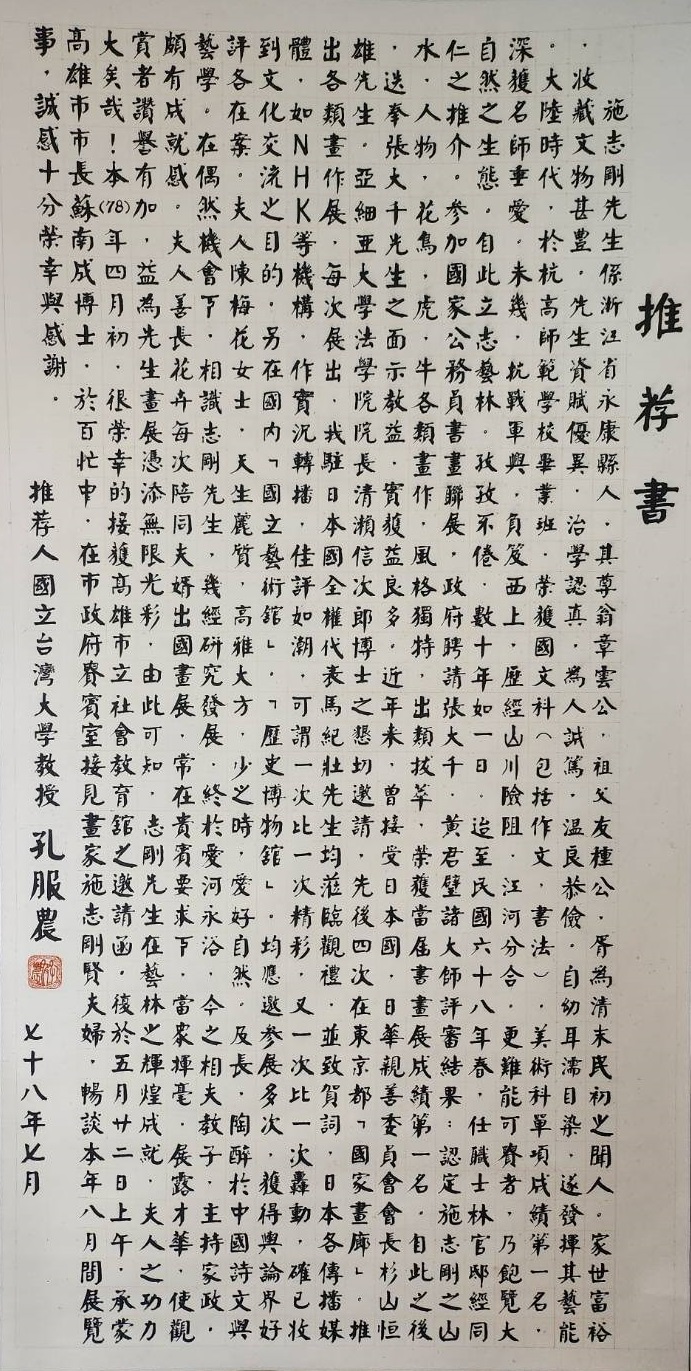 推荐書
施志剛先生係浙江省永康縣人．其尊翁章雲公．祖父友種公．胥為清末民初之聞人。家世富裕
．收藏文物甚豊．先生資賦優異．治學認真．為人誠篤．溫良恭儉．自幼耳濡目染．遂發揮其藝能
。大陸時代．於杭高師範學校畢業班．榮獲國文科（包括作文．書法）．美術科單項成績第一名．
深獲名師垂愛．未幾．抗戰軍興．負笈西上．歷經山川險阻．江河分合．更難能可賽者．乃飽覽大
自然之生態．自此立志藝林．孜孜不倦．數十年如一日．迨至民國六十八年春．任職士林官邸經同
仁之推介．參加國家公務員書畫聯展．政府聘請張大千．黄君壁諸大師評審結果：認定施志剛之山
水．人物．花鳥．虎．牛各類畫作．風格獨特．出類拔萃．榮獲當届書畫展成績第一名．自此之後
．迭奉張大千先生之面示教益．實獲益良多．近年来．曾接受日本國 日華親善委員會會長杉山恒
雄先生．亞細亞大學法學院院長清瀨信次郎博士之懇切邀請．先後四次在東京都「國家畫廊」．推
出各類畫作展．每次展出．我駐日本國全權代表馬紀壯先生均蒞臨觀禮．並致賀詞．日本各傳播媒
體．如ＮＨＫ等機構．作實況轉播．佳評如潮．可謂一次比一次精彩．又一次比一次轟動．確已收
到文化交流之目的．另在國內「國立藝術舘」．「歷史博物舘」．均應邀參展多次．獲得輿論界好
評各在案．夫人陳梅花女士．天生麗質．高雅大方．少之時．愛好自然．及長．陶醉於中國詩文與
藝學。在偶然機會下．相識志剛先生．幾經研究發展．終於愛河永浴．今之相夫教子．主持家政．
頗有成就感．夫人善長花卉每次陪同夫婿出國畫展．常在貴賓要求下．當衆揮毫．展露才華．使觀
賞者讚譽有加．益為先生畫展憑添無限光彩．由此可知．志剛先生在藝林之輝煌成就．夫人之功力
大矣哉！本(78)年四月初．很榮幸的接獲髙雄市立社會教育舘之邀請函．後於五月廿二日上午．承蒙
高雄市市長蘇南成博士．於百忙中．在市政府賽賓室接見畫家施志剛賢夫婦．暢談本年八月間展覽
事．誠感十分榮幸與感謝．
推荐人國立台灣大學教授 孔服農 七十八年七月